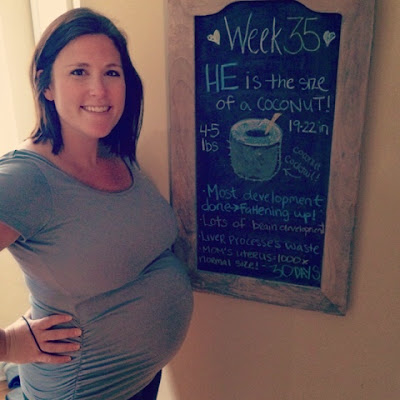 Week 35
HE is the size
of a coconut!
4-5 19-22 in
lbs
coconut
cocktail!
· Most development
done → Fattening up!
· Lots of brain development
· Liver processes waste
· Mom's uterus: 1000x
normal size! - 30 DAYS